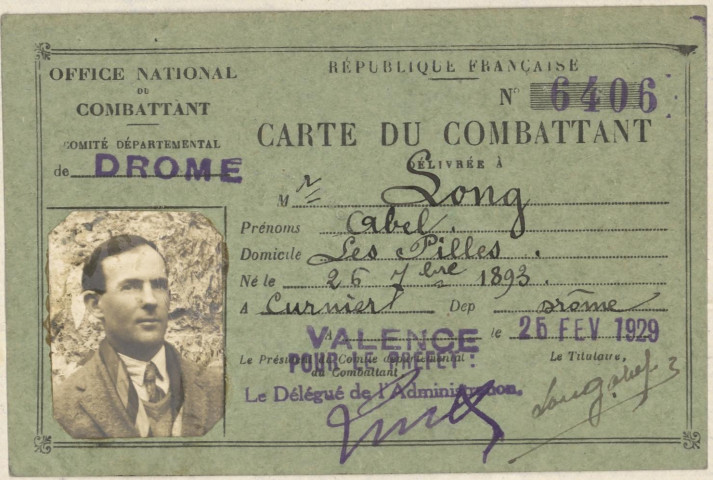 OFFICE NATIONAL
DU
COMBATTANT
COMITÉ DÉPARTEMENTAL
de DROME
RÉPUBLIQUE FRANÇAISE
N° 6406
CARTE DU COMBATTANT
DÉLIVRÉE À
Mr Long
Prénoms Abel.
Domicile Les Pilles.
Né le 26 7bre 1893.
A Curnier Dep Drôme
A VALENCE le 25 FEV 1929
Le Président du Comité départemental
du Combattant,
POUR LE PRÉFET :
Le Délégué de l'Administration,
Le Titulaire,
Long abel